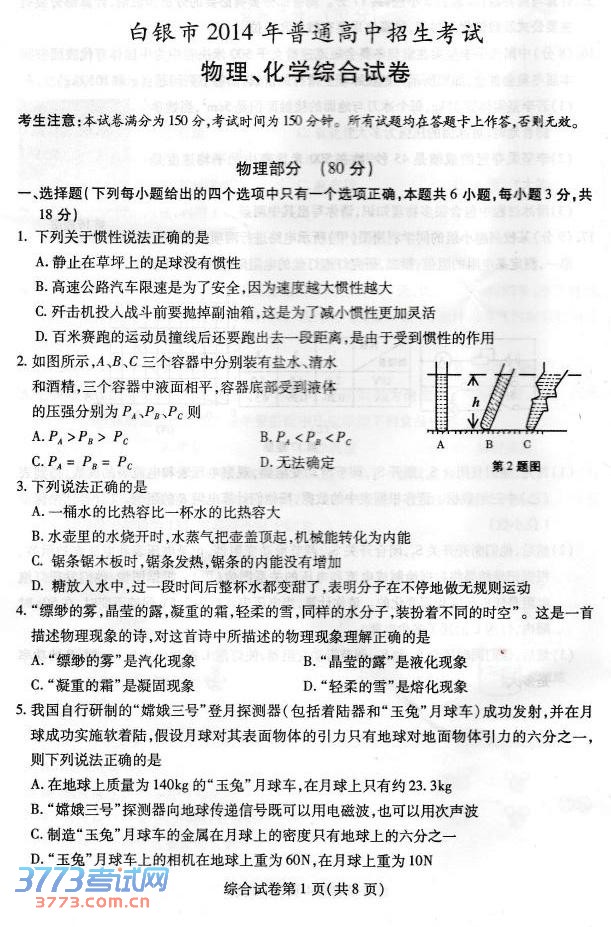 白银市 2014 年普通高中招生考试
物理、化学综合试卷
考生注意:本试卷满分为 150 分,考试时间为 150 分钟。所有试题均在答题卡上作答,否则无效。
物理部分 (80 分)
一、选择题(下列每小题给出的四个选项中只有一个选项正确,本题共 6 小题,每小题 3 分,共
18 分)
1. 下列关于惯性说法正确的是
A. 静止在草坪上的足球没有惯性
B. 高速公路汽车限速是为了安全,因为速度越大惯性越大
C. 歼击机投入战斗前要抛掉副油箱,这是为了减小惯性更加灵活
D. 百米赛跑的运动员撞线后还要跑出去一段距离,是由于受到惯性的作用
2. 如图所示,A、B、C 三个容器中分别装有盐水、清水
和酒精,三个容器中液面相平,容器底部受到液体
的压强分别为 PA、PB、PC 则
A. PA > PB > PC B. PA < PB < PC
C. PA = PB = PC D. 无法确定
h
A B C
第 2 题图
3. 下列说法正确的是
A. 一桶水的比热容比一杯水的比热容大
B. 水壶里的水烧开时,水蒸气把壶盖顶起,机械能转化为内能
C. 锯条锯木板时,锯条发热,锯条的内能没有增加
D. 糖放入水中,过一段时间后整杯水都变甜了,表明分子在不停地做无规则运动
4. “缥缈的雾,晶莹的露,凝重的霜,轻柔的雪,同样的水分子,装扮着不同的时空”。这是一首
描述物理现象的诗,对这首诗中所描述的物理现象理解正确的是
A. “缥缈的雾”是汽化现象 B. “晶莹的露”是液化现象
C. “凝重的霜”是凝固现象 D. “轻柔的雪”是熔化现象
5. 我国自行研制的“嫦娥三号”登月探测器(包括着陆器和“玉兔”月球车)成功发射,并在月
球成功实施软着陆,假设月球对其表面物体的引力只有地球对地面物体引力的六分之一,
则下列说法正确的是
A. 在地球上质量为 140kg 的“玉兔”月球车,在月球上只有约 23.3kg
B. “嫦娥三号”探测器向地球传递信号既可以用电磁波,也可以用次声波
C. 制造“玉兔”月球车的金属在月球上的密度只有地球上的六分之一
D. “玉兔”月球车上的相机在地球上重为 60N,在月球上重为 10N
3773考试网
3773.com.cn
综合试卷第 1 页(共 8 页)